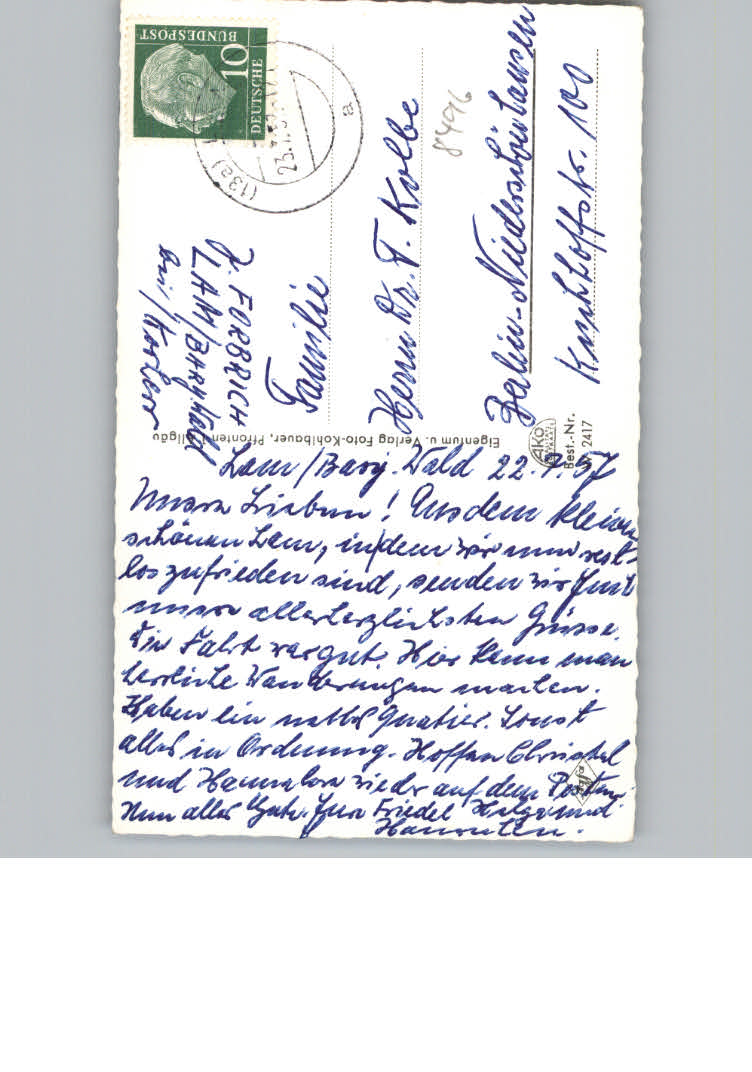 DEUTSCHE
BUNDESPOST
10
(13a)
23.7.5
a
8496
J. FORBRICH
LAM/BAYR. Wald
bei
Familie
Herrn Dr. F. Kolbe
Berlin-Niederschönhausen
Kuckhoffstr. 100
Eigentum u. Verlag Foto-Kohlbauer, Pfronten Allgäu
AKO
Best.-Nr.
2417
Lam/Bayr. Wald 22.7.57
Unsere Lieben! Aus dem kleinen
schönen Lam, in dem wir nun rest-
los zufrieden sind, senden wir Euch
unsere allerherzlichsten Grüsse.
Die Fahrt war gut. Hier kann man
herrliche Wanderungen machen.
Haben ein nettes Quatier. Sonst
alles in Ordnung. Hoffen Christel
und Hannelore wieder auf dem Posten.
Nun alles Gute. Eure Friedel Helga und
Agfa